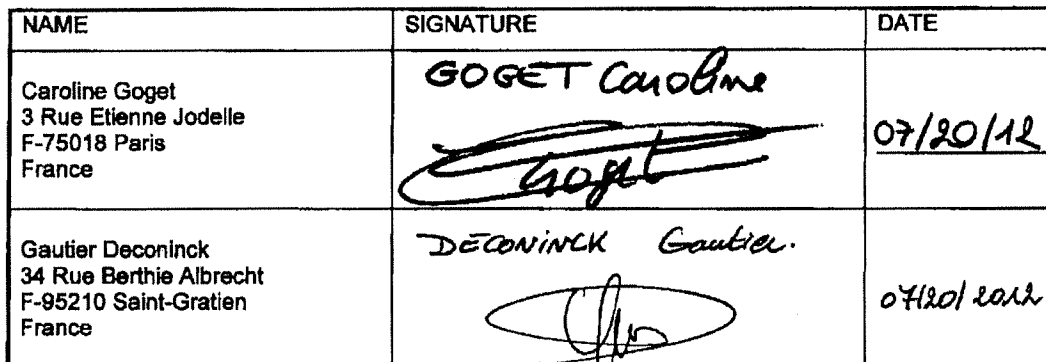 NAME SIGNATURE DATE
Caroline Goget
3 Rue Etienne Jodelle
F-75018 Paris
France
GOGET Caroline
Goget
07/20/12
Gautier Deconinck
34 Rue Berthie Albrecht
F-95210 Saint-Gratien
France
DECONINCK Gautier.
07/20/2012